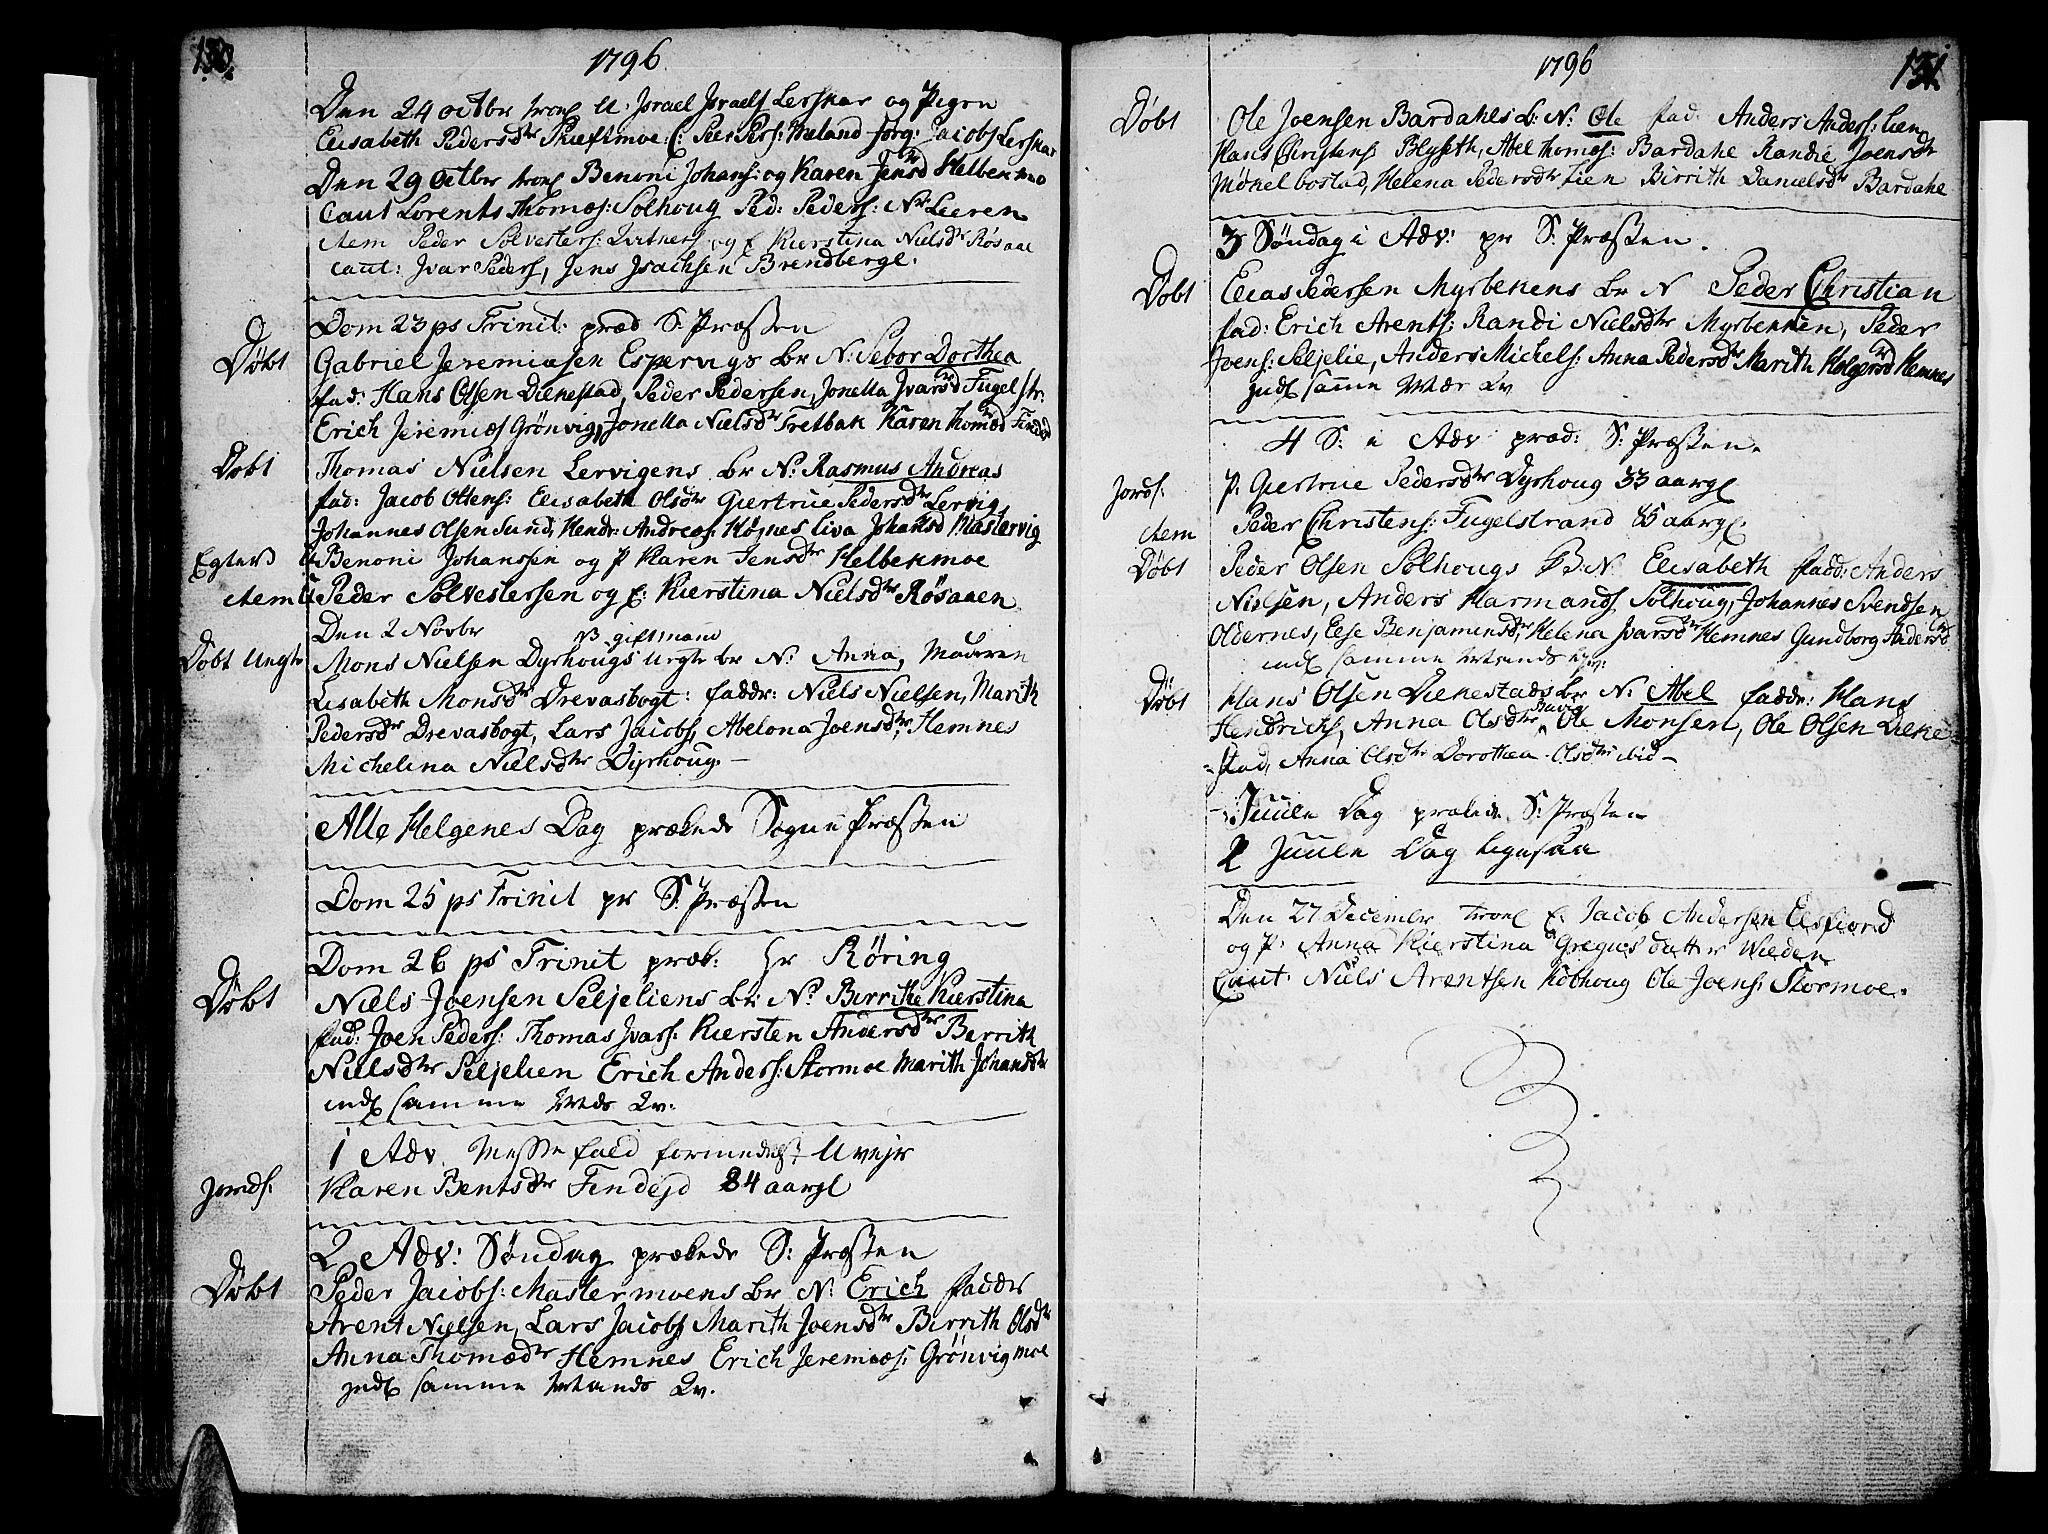 130.
1796.
Den 24 octbr trol U: Israel Israels Lerskar og Pigen
Elisabeth Pedersdtr C: Peer Pers: Jørg: Jacobs Lerskar
Den 29 octbr trol Benoni Johans: og Karen Jensdtr Helbekmoe
Caut Lorents Thomæs: Solhoug Ped: Peders: Nr: Leeren
item Peder Sølvesters: og E Kierstina Nielsdtr Røsaae
caut: Ivar Peders, Jens Isachsen Brendbergl.
Dom 23 ps Trinit: præd S: Præsten
Døbt Gabriel Jeremiæsen Espervigs br N: Sebor Dorthea
fad: Hans Olsen Dienestad, Peder Pedersen, Jonetta Ivarsdtr Fugelstr:
Erich Jeremiæs Grönvig, Jonetta Nielsdtr Tretbak Karen Thomædtr Findejd
Døbt Thomas Nielsen Lervigens br N: Rasmus Andreas
fad: Jacob Ottens: Elisabeth Olsdtr Giertrue Pedersdtr Lervig,
Johannes Olsen Sund, Hendr: Andreas: Høgnes Liva Johansd Mastervig
Egtev: Benoni Johanssen og P Karen Jensdtr Helbekmoe
item Peder Sølvestersen og E: Kierstina Nielsdtr Røsaaen
Den 2 Novbr
giftmand
Døbt Uegte Mons Nielsen Dyrhougs Uegte br N: Anna, Moderen
Lisabeth Monsdtr Drevasbogt: faddr: Niels Nielsen, Marith
Pedersdtr Drevasbogt, Lars Jacobs, Abelona Joensdtr, Hemnes
Michelina Nielsdtr Dyrhoug.
Alle Helgenes Dag prækede Sogne Præsten
Dom 25 ps Trinit pr S: Præsten
Dom 26 ps Trinit præk: Hr Röring
Døbt Niels Joensen Seljeliens br: N: Birrithe Kierstina
fad: Joen Peders: Thomas Ivars: Kiersten Andersdtr Berrith
Nielsdtr Seljelien Erich Anders: Stormoe Marith Johansdtr
indl samme Qv.
1 Adv. Messefald formedelst Uvejr
Jords: Karen Bentsdtr Findejd 84 aargl
2 Adv: Søndag prækede S: Præsten
Døbt Peder Jacobs: Mastermoens br N: Erich fadder
Arent Nielsen, Lars Jacobs, Marith Joensdtr Birrith Olsdtr
Anna Thomædtr Hemnes Erich Jeremiæs: Grönvigmoe
indl samme Mands Qv.
1796
131.
Døbt Ole Joensen Bardahls b: N: Ole fad: Anders Anders: Lien
Hans Christens: Blyseth, Abel Thomæs: Bardahl Randie Joensdtr
Møkelbostad, Helena Pedersdtr Lien Birrith Danielsdtr Bardahl
3 Søndag i Adv: pr S: Præsten.
Døbt Elias Pedersen Myrbekens br N Peder Christian
fad: Erich Arents: Randi Nielsdtr Myrbekken, Peder
Joens: Seljelie, Anders Michels: Anna Pedersdtr Marith Holgersdtr Hemnes
indl samme Qv
4 S: i Adv præd: S: Præsten.
Jords: P: Giertrue Pedersdtr Dyrhoug 33 aargl
item Peder Christens: Fugelstrand 85 aargl
Døbt Peder Olsen Solhougs B: N. Elisabeth fadd: Anders
Nielsen, Anders Harmands Solhoug, Johannes Svendsen
Oldernes, Else Benjaminsdtr, Helena Ivarsdtr Hemnes Gundborg Andersdtr
indl samme Mands Qv:
Døbt Hans Olsen Dienestads br N: Abel faddr: Hans
Hendrichs, Anna Olsdtr Ole Monsen, Ole Olsen Diene=
=stad, Anna Olsdtr Dorothea Olsdtr ibid
Juule Dag prækede S: Præsten
2 Juule Dag ligesaa
Den 27 December trol E: Jacob Andersen Elsfiord
og P: Anna Kierstina Gregus datter
Caut Niels Arentsen Kobhoug Ole Joens: Stormoe.